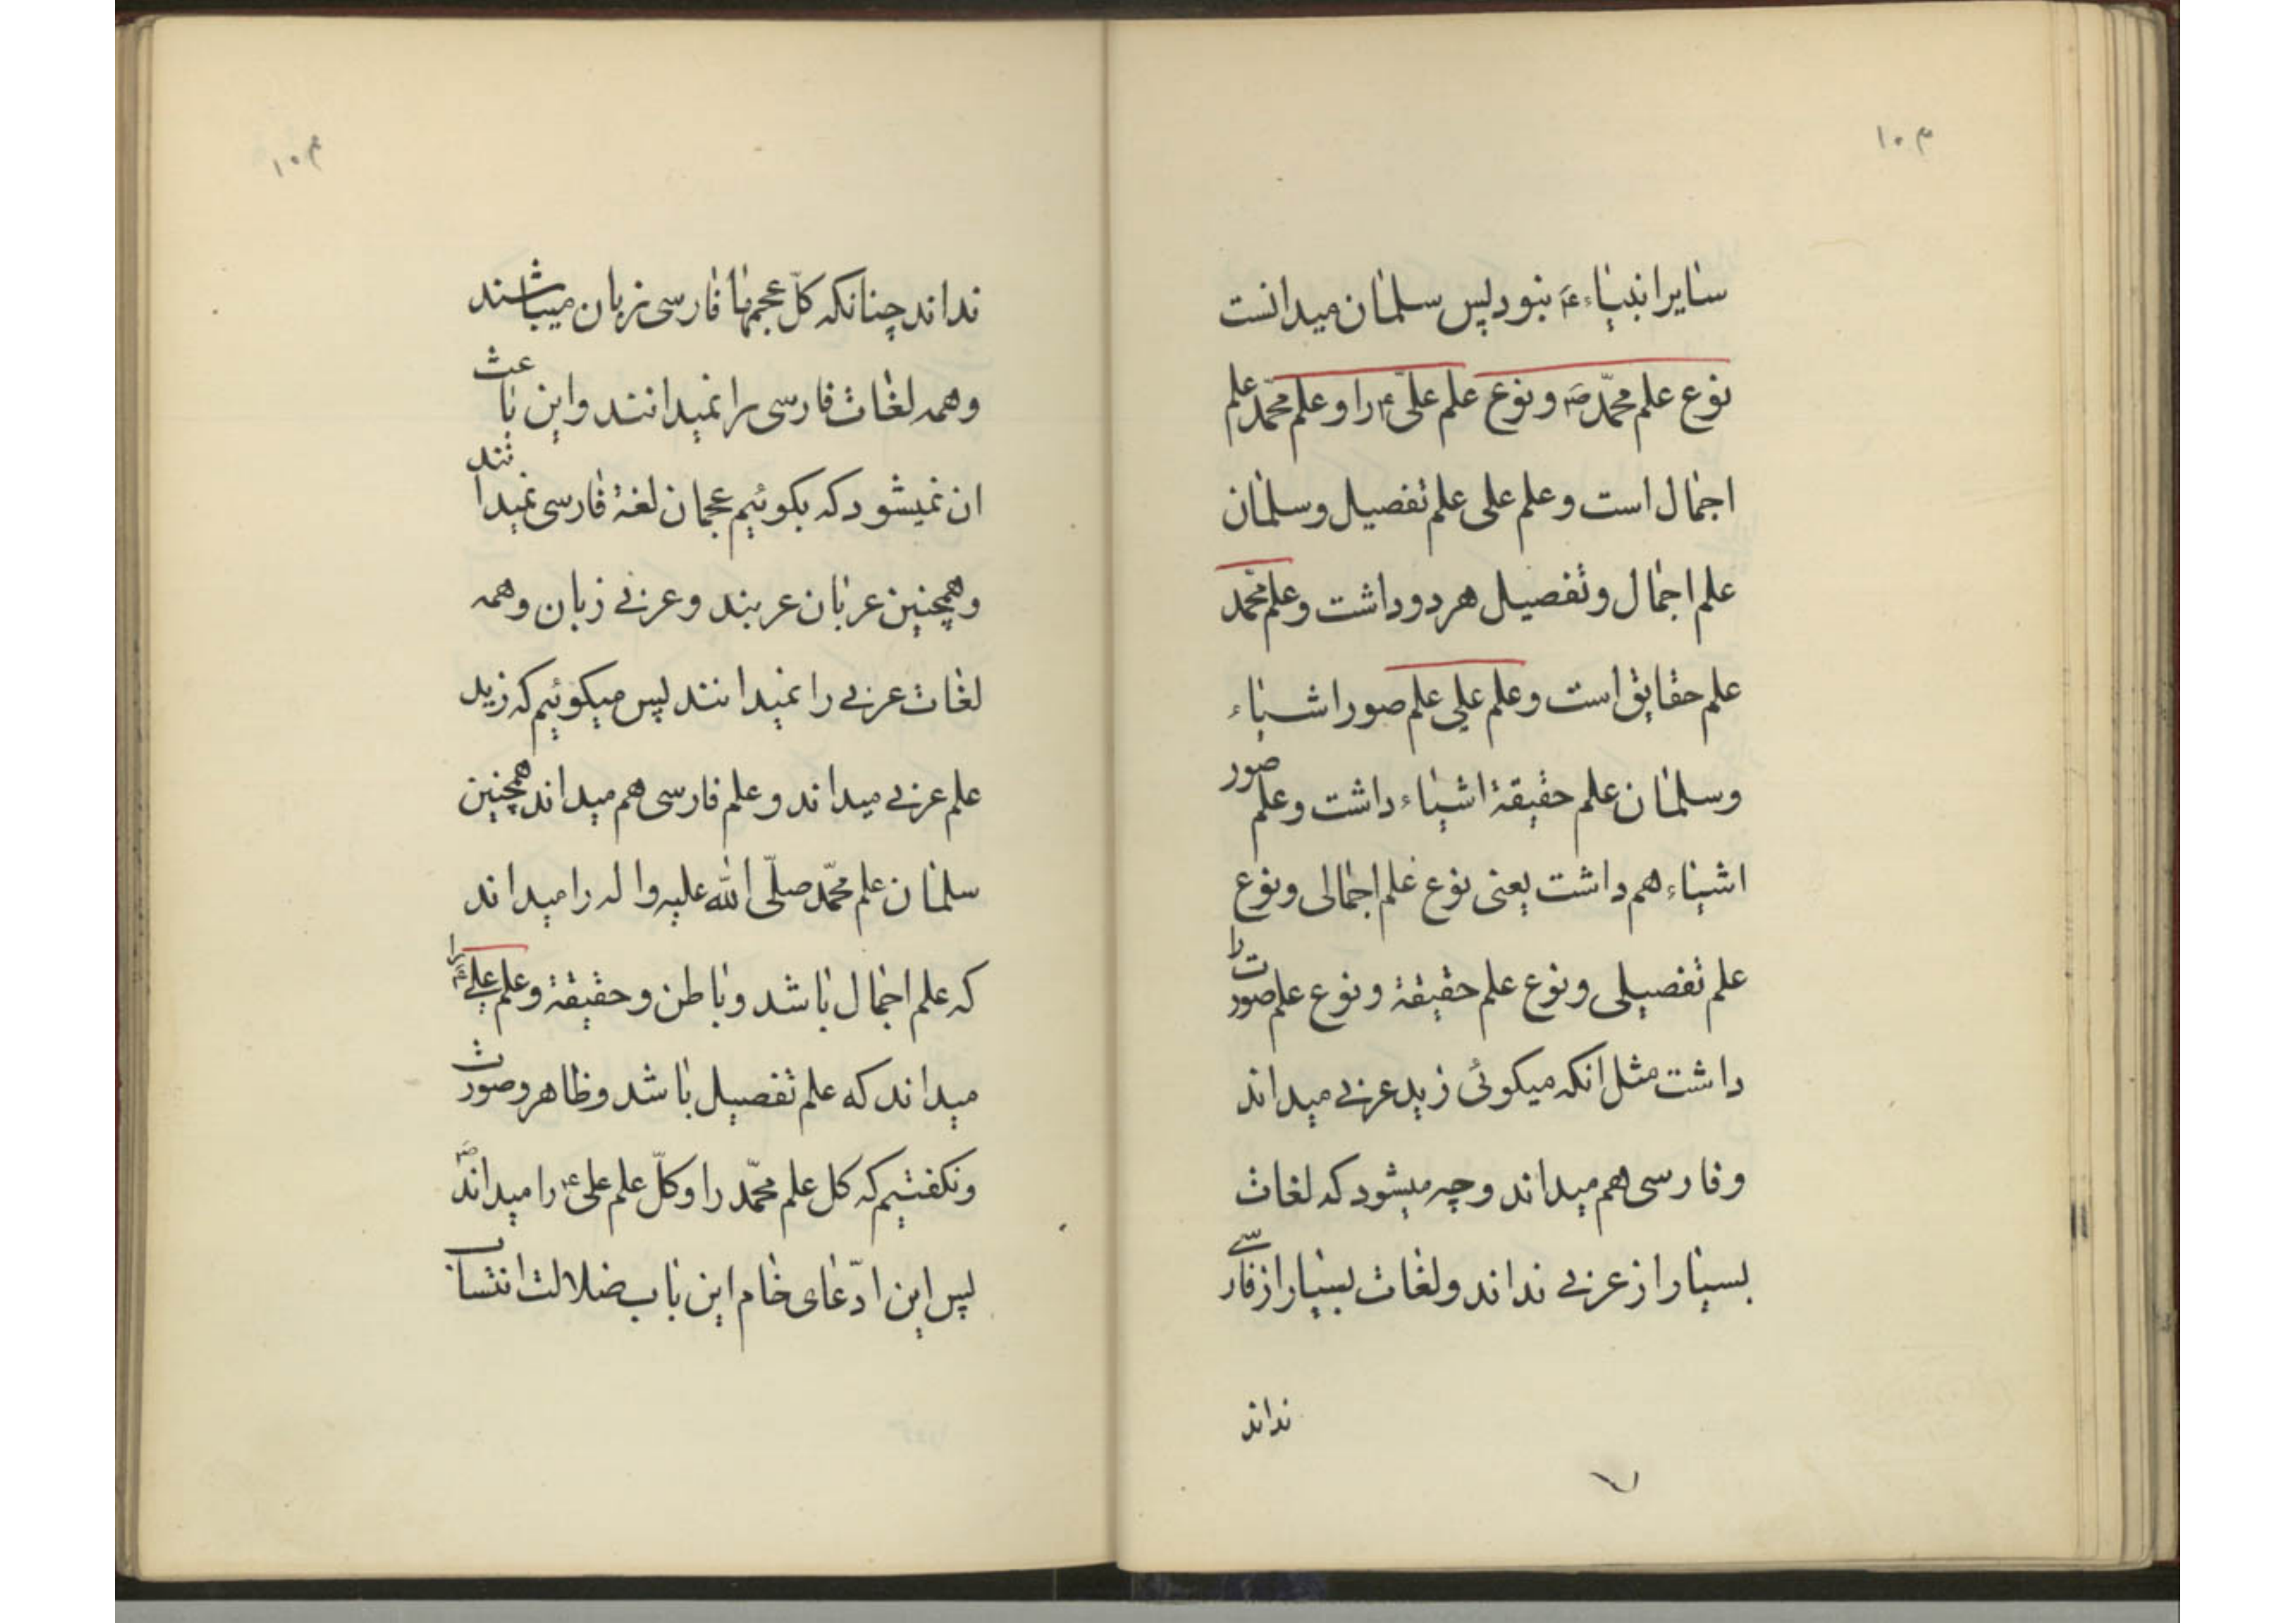 م ۱۰
سایر انبیاء ع نبود پس سلمان میدانست
نوع علم محمّد ص و نوع علم علیّ ع را و علم محمّد علم
اجمال است و علم علی علم تفصیل و سلمان
علم اجمال و تفصیل هر دو داشت و علم محمّد
علم حقایق است و علم علی علم صور اشیاء
و سلمان علم حقیقة اشیاء داشت و علم صور
اشیاء هم داشت یعنی نوع علم اجمالی و نوع
علم تفصیلی و نوع علم حقیقة و نوع علم صورت را
داشت مثل انکه میکوئی زید عربی میداند
و فارسی هم میداند و چه میشود که لغات
بسیار از عربی نداند و لغات بسیار از فارسی
نداند
م ۱۰
نداند چنانکه کلّ عجمها فارسی زبان میباشند
و همه لغات فارسی را نمیدانند و این باعث
ان نمیشود که بکوئیم عجمان لغة فارسی نمیدانند
و همچنین عربان عربند و عربی زبان و همه
لغات عربی را نمیدانند پس میکوئیم که زید
علم عربی میداند و علم فارسی هم میداند همچنین
سلمان علم محمّد صلّی الله علیه و اله را میداند
که علم اجمال باشد و باطن و حقیقة و علم علی ع را
میداند که علم تفصیل باشد و ظاهر و صورت
و نکفتیم که کل علم محمّد ص را و کلّ علم علی ع را میداند
پس این ادّعای خام این باب ضلالت انتساب